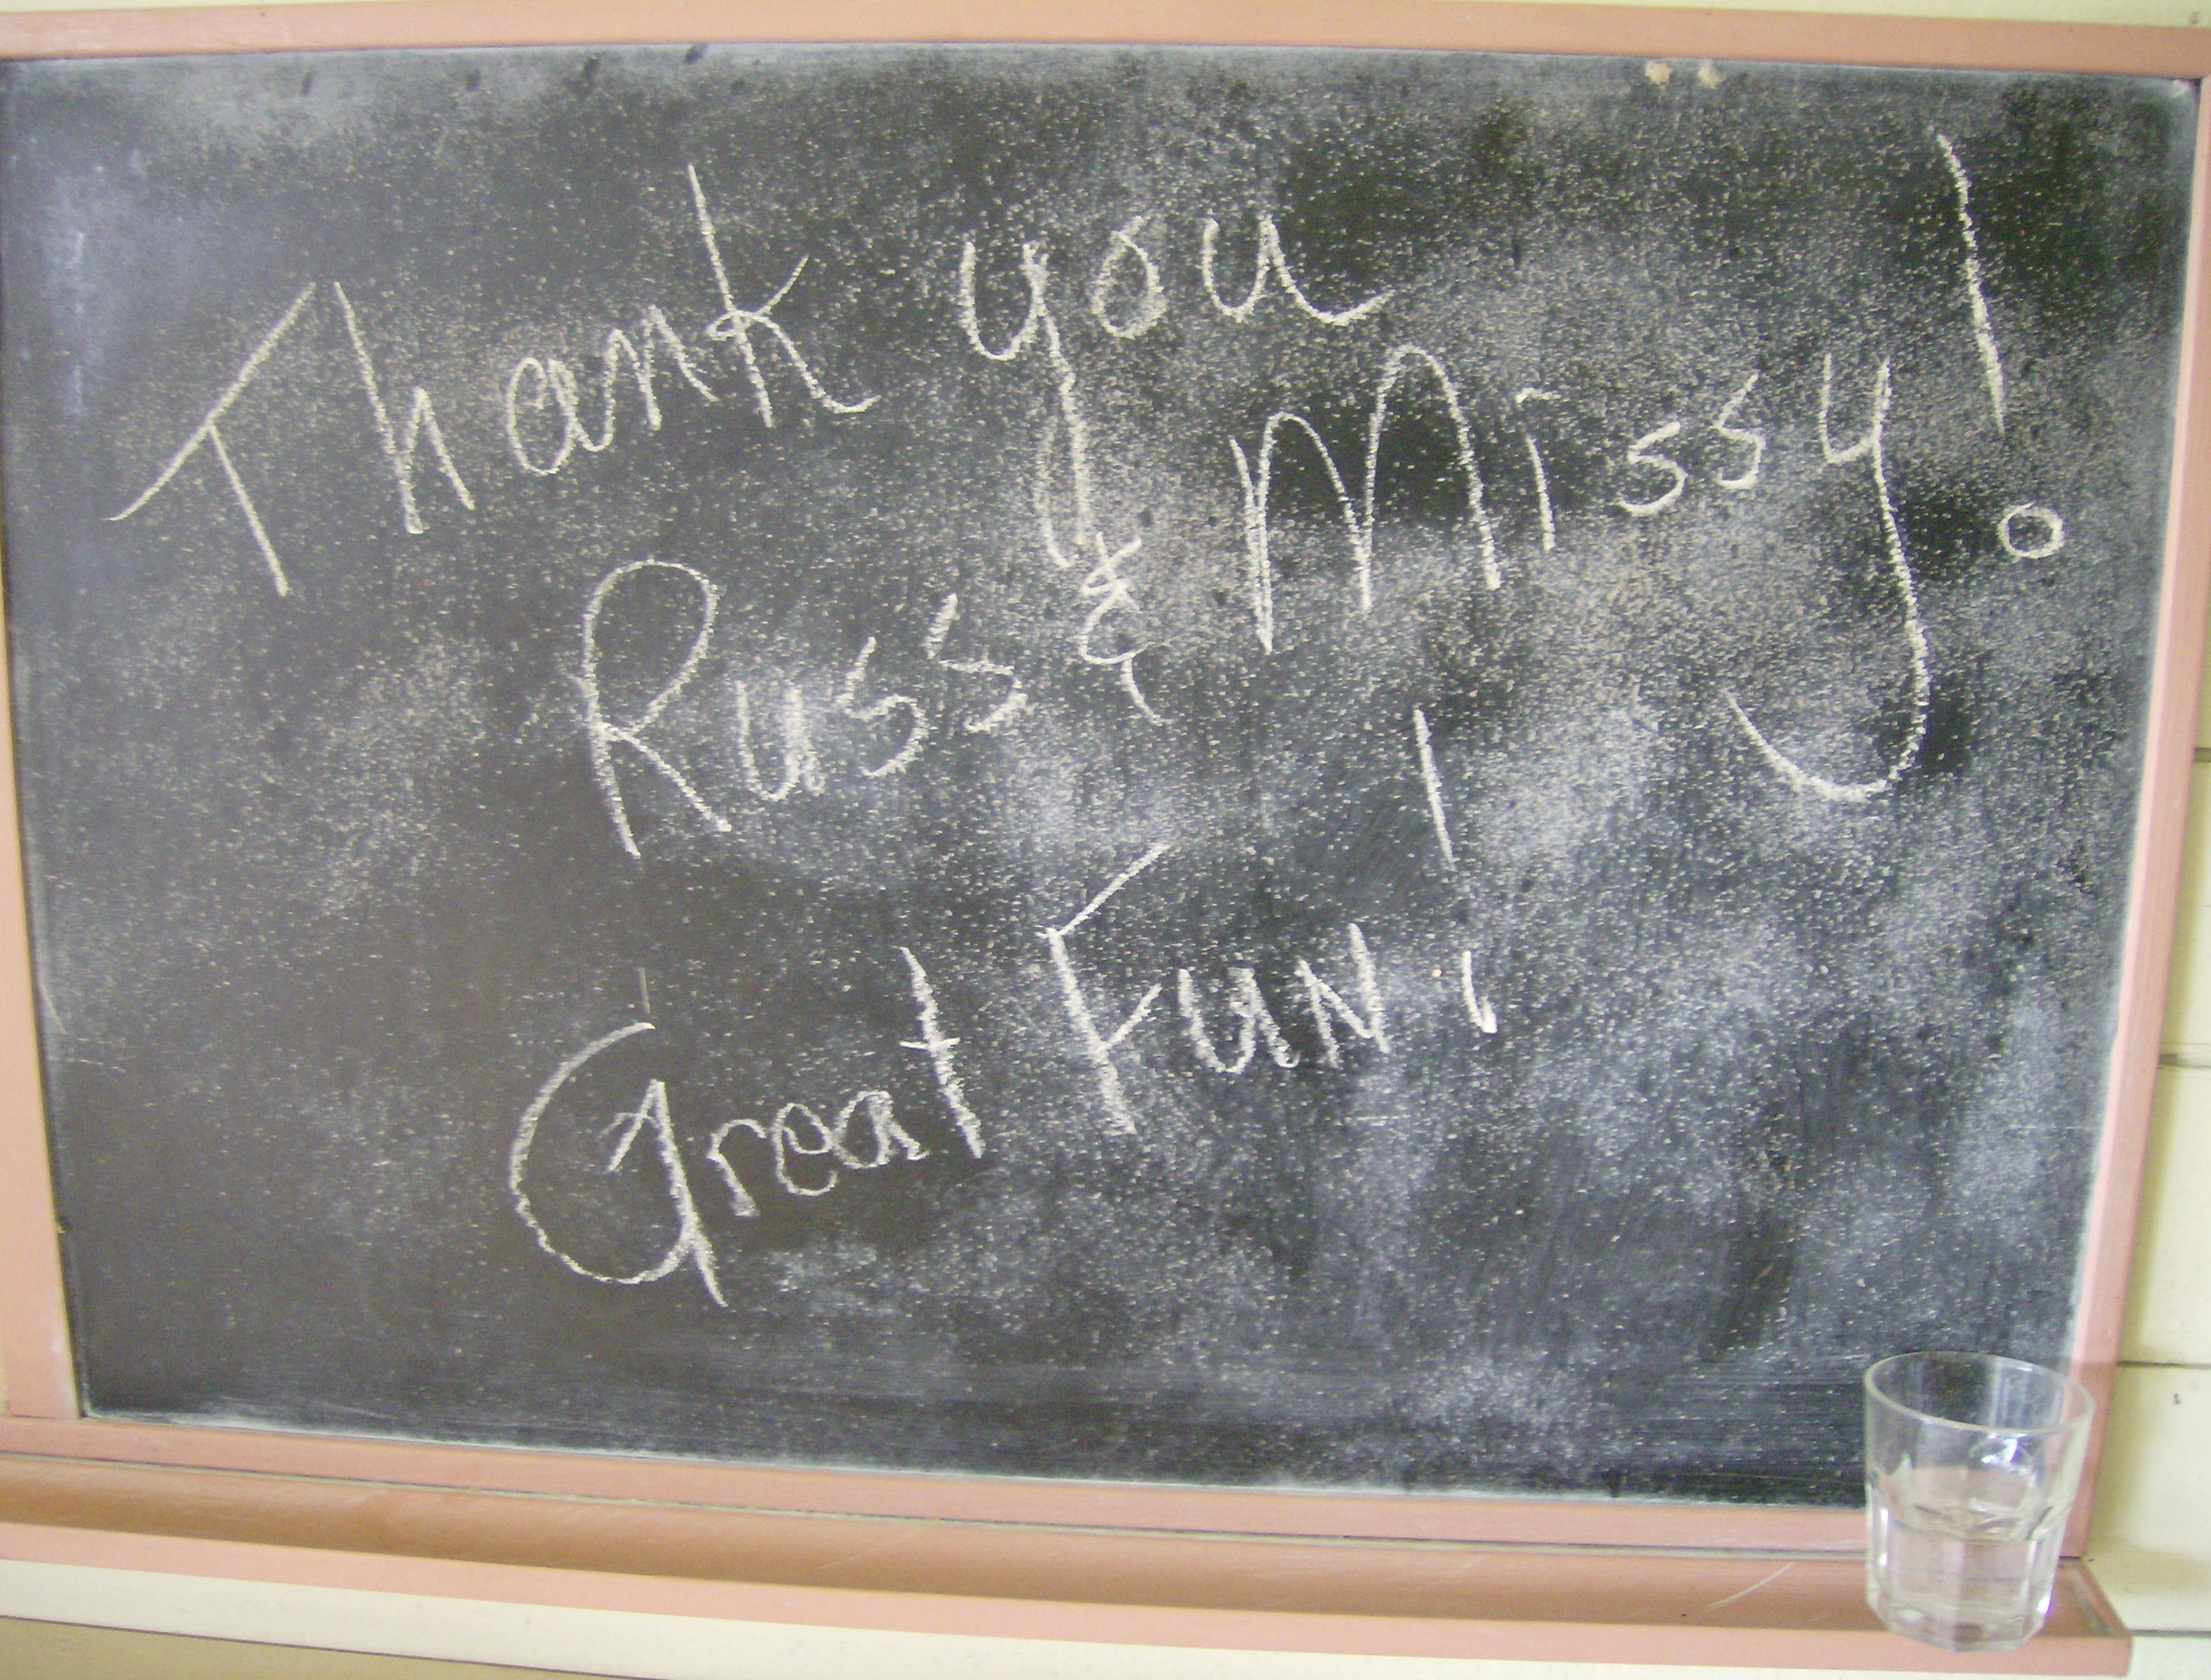 Thank you
Russ & Missy!
Great Fun!